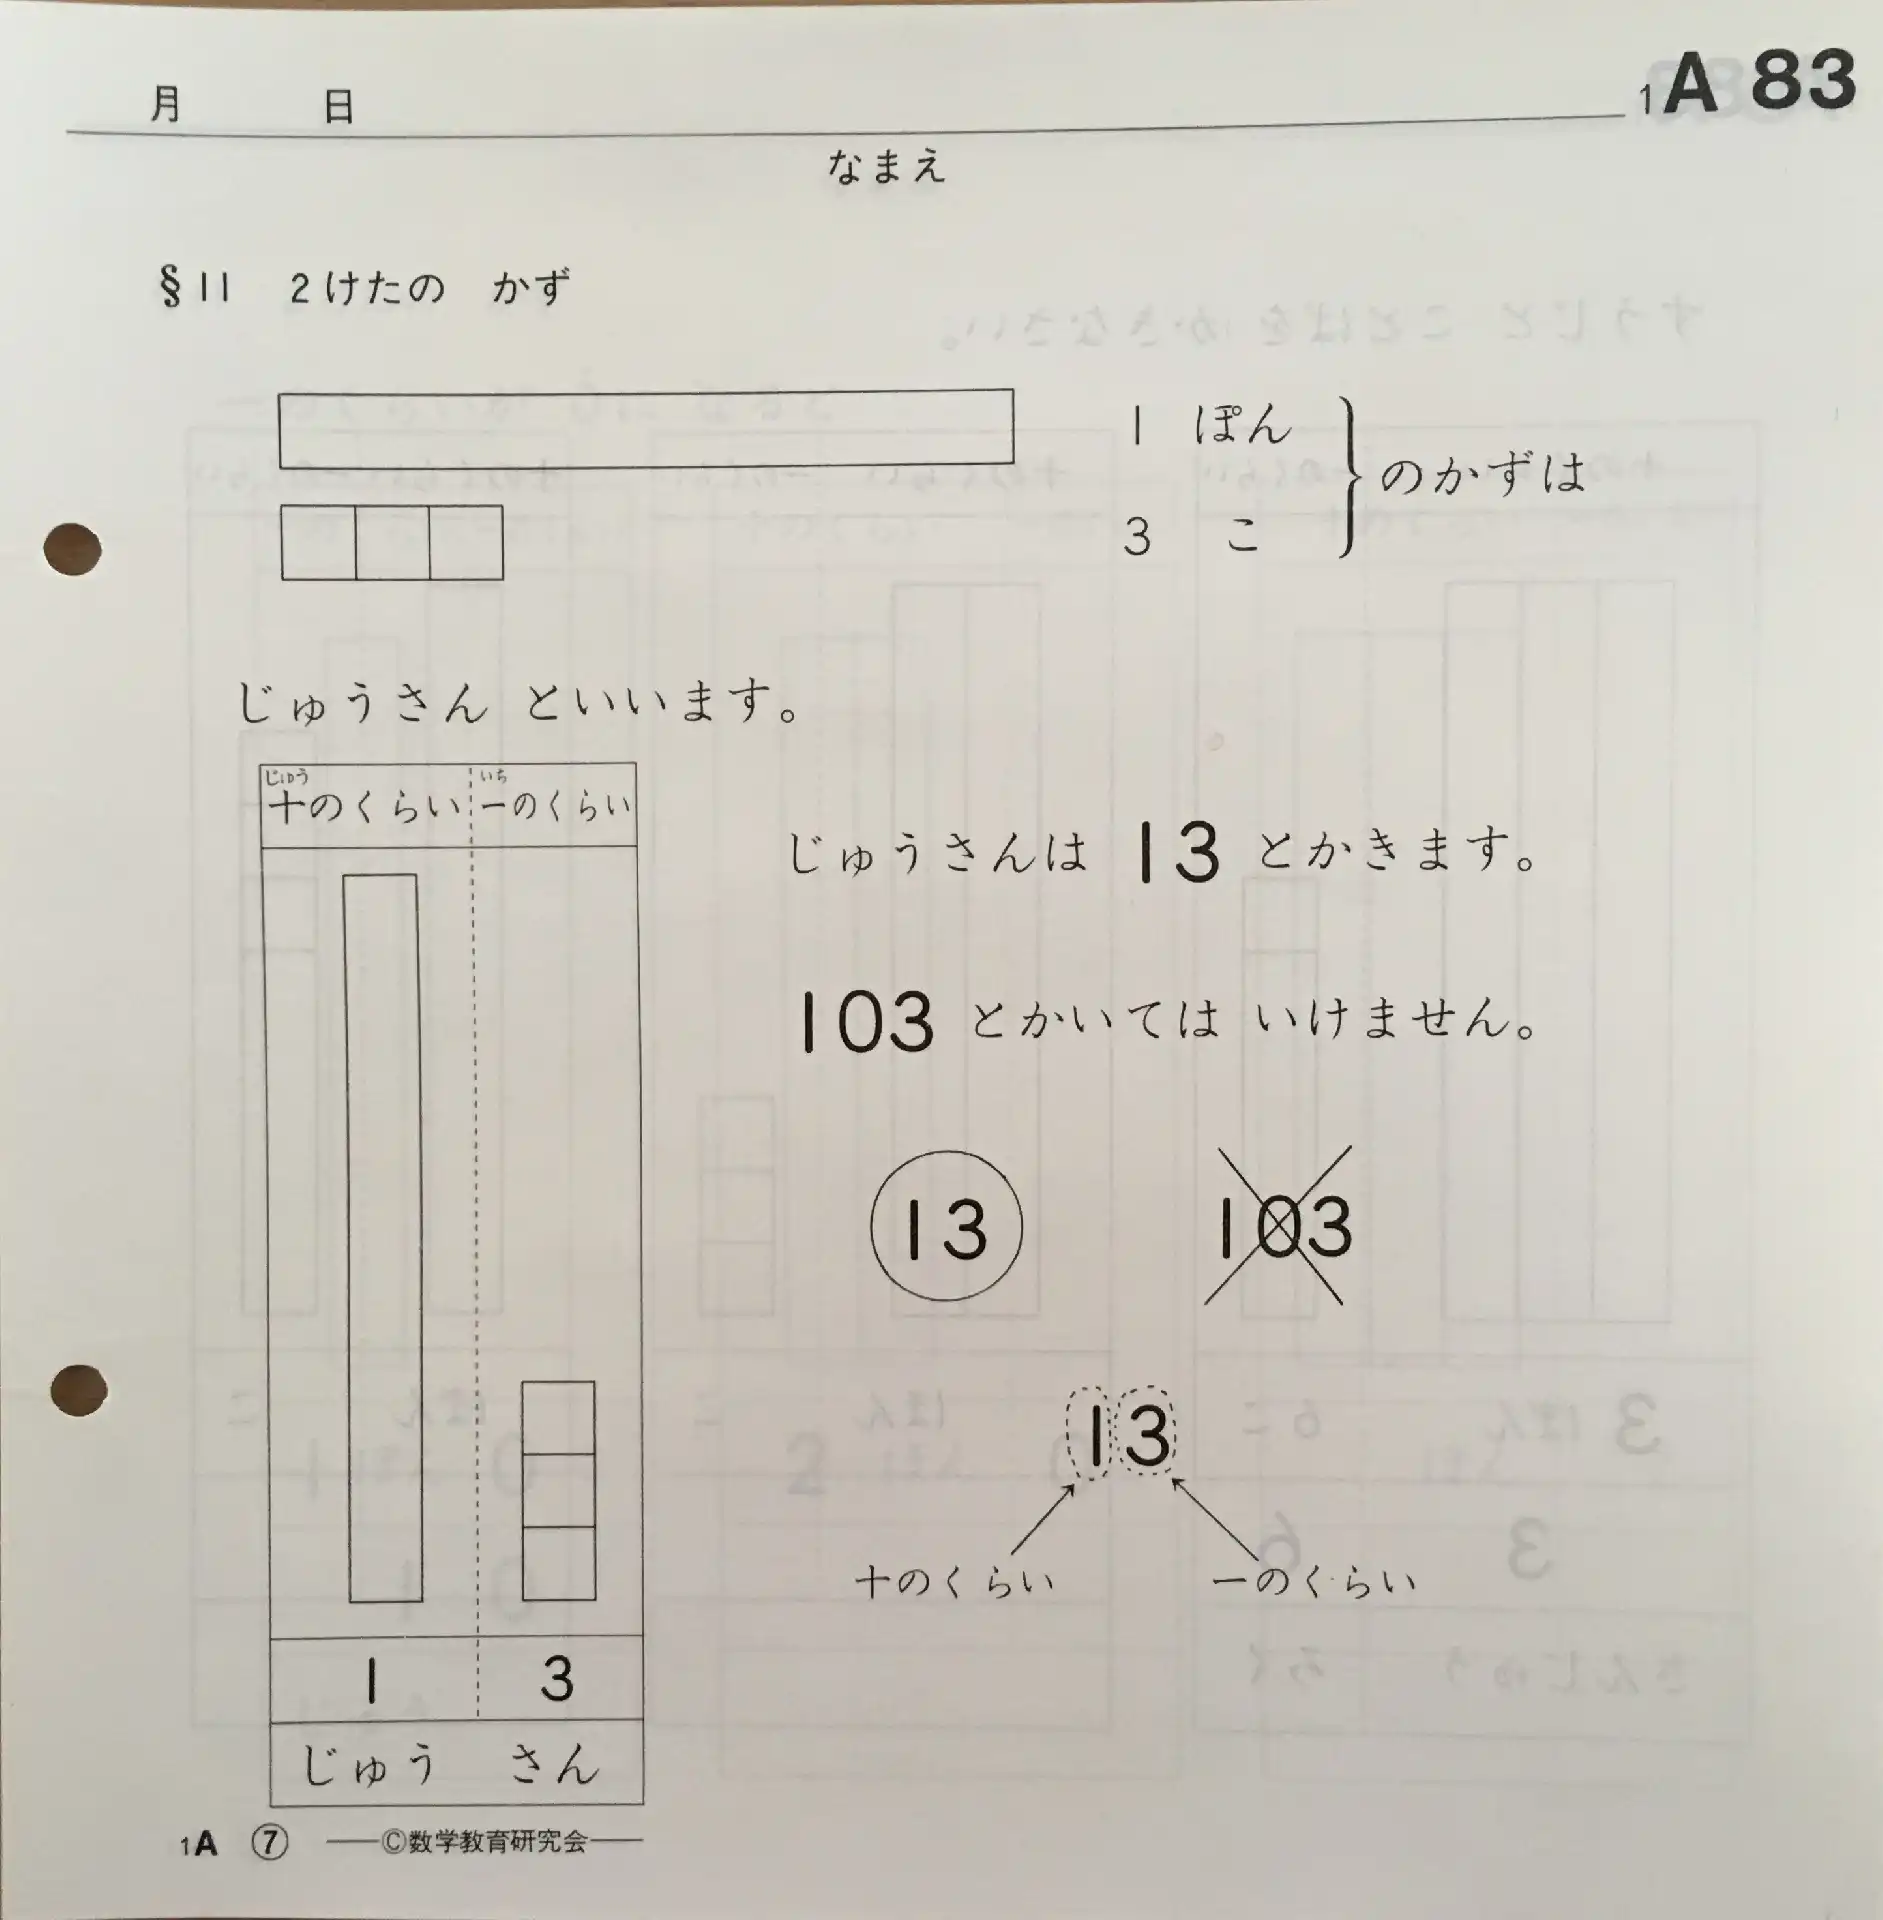 月 日
1A 83
なまえ
§11 2けたの かず
1 ぽん
3 こ
のかずは
じゅうさん といいます。
じゅう いち
十のくらい 一のくらい
じゅうさんは 13 とかきます。
103 とかいては いけません。
13 103
13
十のくらい 一のくらい
1 3
じゅう さん
1A ⑦ ©数学教育研究会